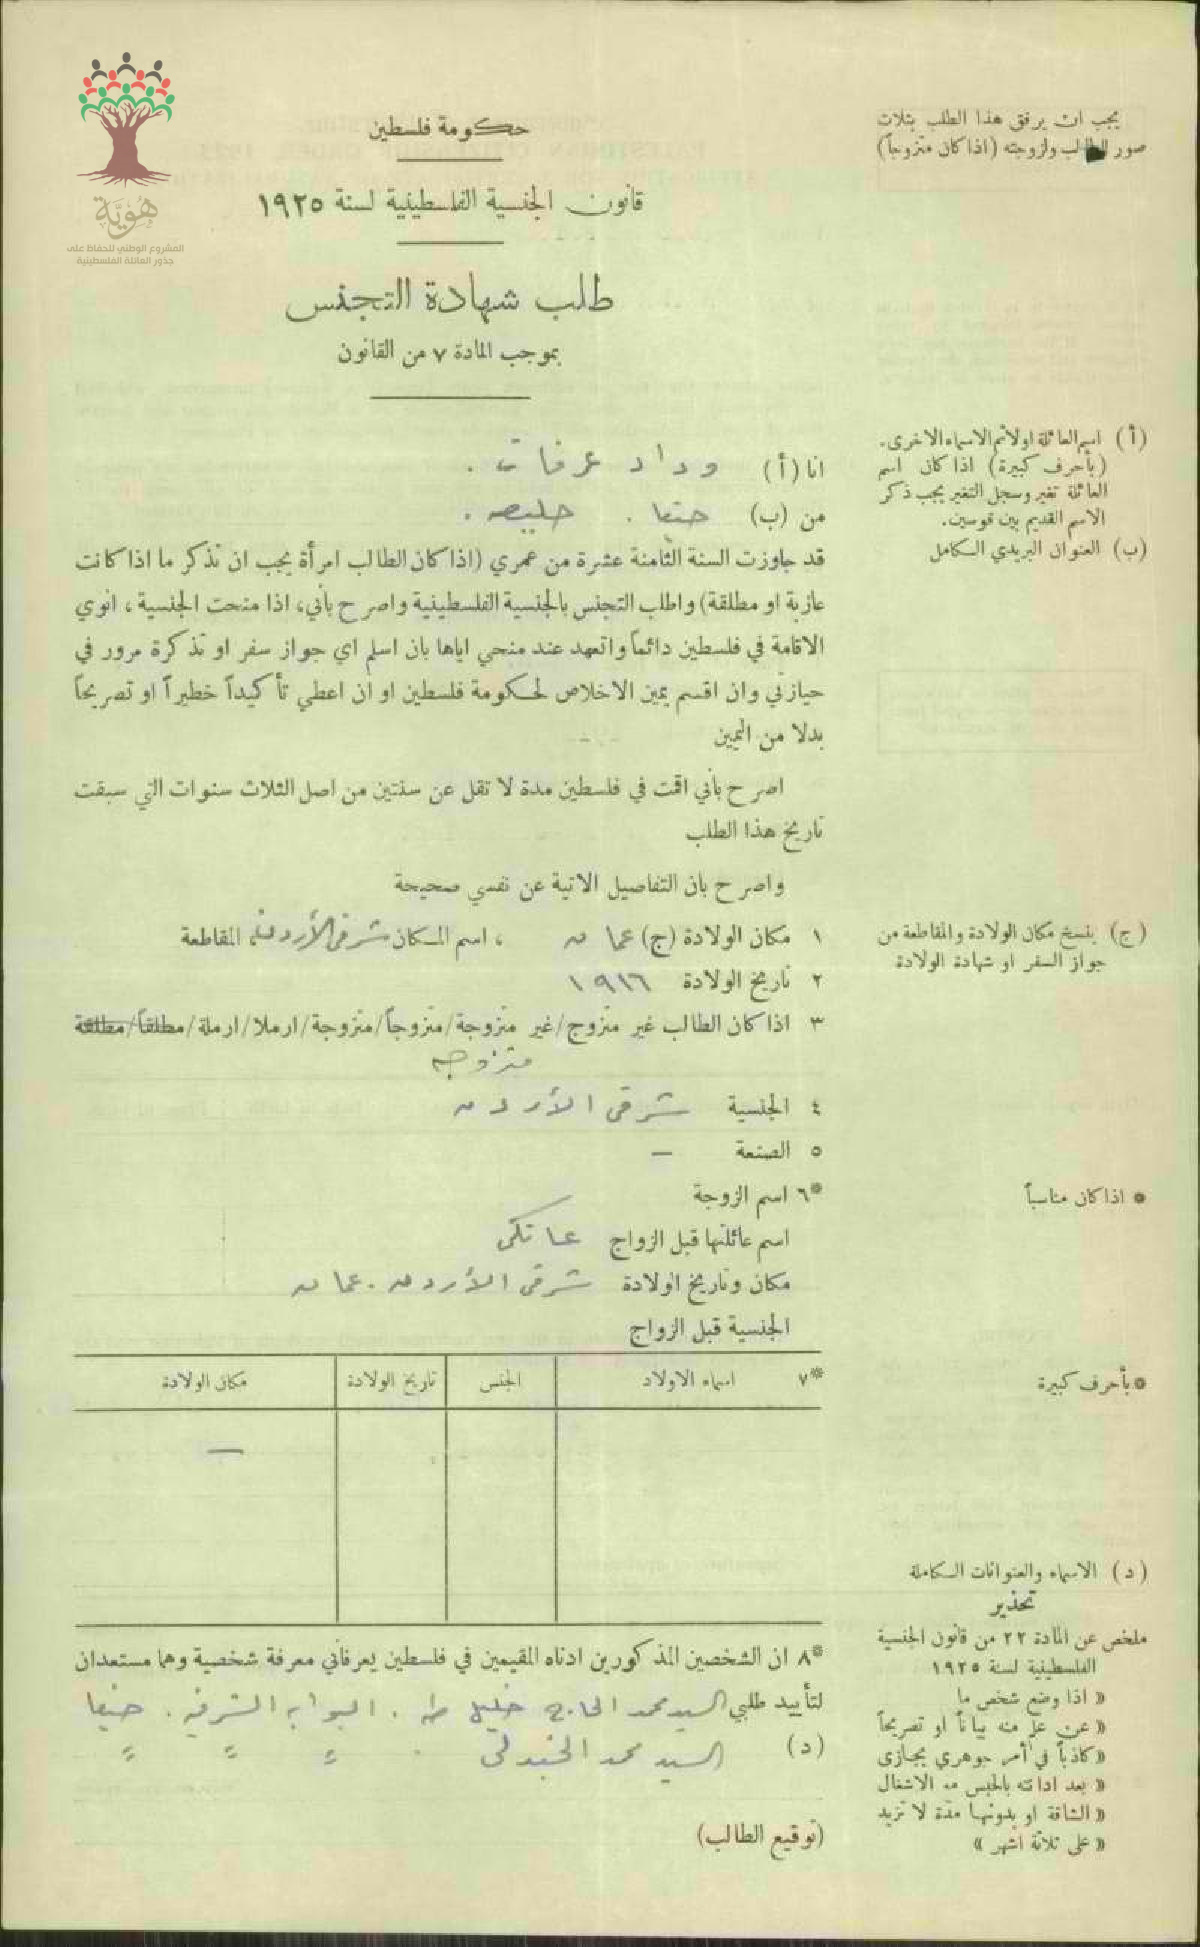 هُويَّة
المشروع الوطني للحفاظ على
جذور العائلة الفلسطينية
يجب ان يرفق هذا الطلب بثلاث
صور الطالب ولزوجته (اذا كان متزوجاً)
حكومة فلسطين
قانون الجنسية الفلسطينية لسنة ١٩٢٥
طلب شهادة التجنس
بموجب المادة ٧ من القانون
(أ) اسم العائلة اولا ثم الاسماء الاخرى.
(بأحرف كبيرة) اذا كان اسم
العائلة تغير وسجل التغير يجب ذكر
الاسم القديم بين قوسين.
(ب) العنوان البريدي الكامل
انا (أ) وداد عرفات .
من (ب) حيفا .
قد جاوزت السنة الثامنة عشرة من عمري (اذا كان الطالب امرأة يجب ان تذكر ما اذا كانت
عازبة او مطلقة) واطلب التجنس بالجنسية الفلسطينية واصرح بأني، اذا منحت الجنسية، انوي
الاقامة في فلسطين دائماً واتعهد عند منحي اياها بان اسلم اي جواز سفر او تذكرة مرور في
حيازتي وان اقسم يمين الاخلاص لحكومة فلسطين او ان اعطي تأكيداً خطيراً او تصريحاً
بدلا من اليمين
اصرح بأني اقمت في فلسطين مدة لا تقل عن سنتين من اصل الثلاث سنوات التي سبقت
تاريخ هذا الطلب
واصرح بان التفاصيل الاتية عن نفسي صحيحة
(ج) ينسخ مكان الولادة والمقاطعة من
جواز السفر او شهادة الولادة
١ مكان الولادة (ج) عمان ، اسم المكان شرقي الأردن، المقاطعة
٢ تاريخ الولادة ١٩١٦
٣ اذا كان الطالب غير متزوج/غير متزوجة/متزوجاً/متزوجة/ارملا/ارملة/مطلقاً/مطلقة
متزوجه
٤ الجنسية شرقي الأردن
٥ الصنعة —
* اذا كان مناسباً
*٦ اسم الزوجة
اسم عائلتها قبل الزواج
مكان وتاريخ الولادة شرقي الأردن . عمان
الجنسية قبل الزواج
* بأحرف كبيرة
*٧ اسماء الاولاد الجنس تاريخ الولادة مكان الولادة
—
(د) الاسماء والعنوانات الكاملة
تحذير
ملخص عن المادة ٢٢ من قانون الجنسية
الفلسطينية لسنة ١٩٢٥
« اذا وضع شخص ما
« عن علم منه بياناً او تصريحاً
« كاذباً في أمر جوهري يجازى
« بعد ادانته بالحبس مع الاشغال
« الشاقة او بدونها مدة لا تزيد
« على ثلاثة اشهر »
*٨ ان الشخصين المذكورين ادناه المقيمين في فلسطين يعرفاني معرفة شخصية وهما مستعدان
لتأييد طلبي السيد محمد الحاج خليل طه . البوابه الشرقيه . حيفا
(د) السيد محمد . " " "
(توقيع الطالب)